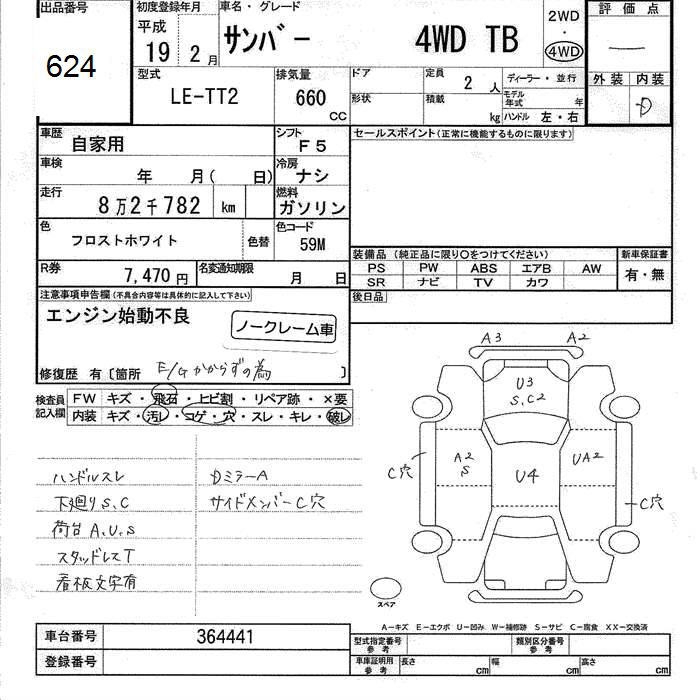 出品番号 初度登録年月 車名・グレード 評価点
624 平成 19 2月 サンバー 4WD TB 2WD ・ 4WD —
型式 排気量 ドア 定員 2 人 ディーラー・並行 外装 内装
LE-TT2 660 CC 形状 積載 kg モデル年式 年 D
ハンドル 左・右
車歴 自家用 シフト F5 セールスポイント(正常に機能するものに限ります)
車検 年 月( 日) 冷房 ナシ
走行 8万2千782 km 燃料 ガソリン
色 フロストホワイト 色替 色コード 59M
装備品 (純正品に限り○をつけてください) 新車保証書
PS PW ABS エアB AW 有・無
SR ナビ TV カワ
R券 7,470円 名変通知期限 月 日
後日品
注意事項申告欄(不具合内容等は具体的に記入して下さい)
エンジン始動不良 ノークレーム車
修復歴 有〔箇所 E/Gかからずの為 〕
検査員記入欄 FW キズ・飛石・ヒビ割・リペア跡・×要
内装 キズ・汚レ・コゲ・穴・スレ・キレ・破レ
ハンドルスレ DミラーA
下廻りS,C サイドメンバーC穴
荷台A,U,S
スタッドレスT
看板文字有
A3 A2
U3
S,C2
A2
S
U4
UA2
C穴
C穴
スペア
A−キズ E−エクボ U−凹み W−補修跡 S−サビ C−腐食 XX−交換済
車台番号 364441
登録番号
型式指定番号 参考 類別区分番号 参考
車庫証明用 参考 長さ cm 幅 cm 高さ cm